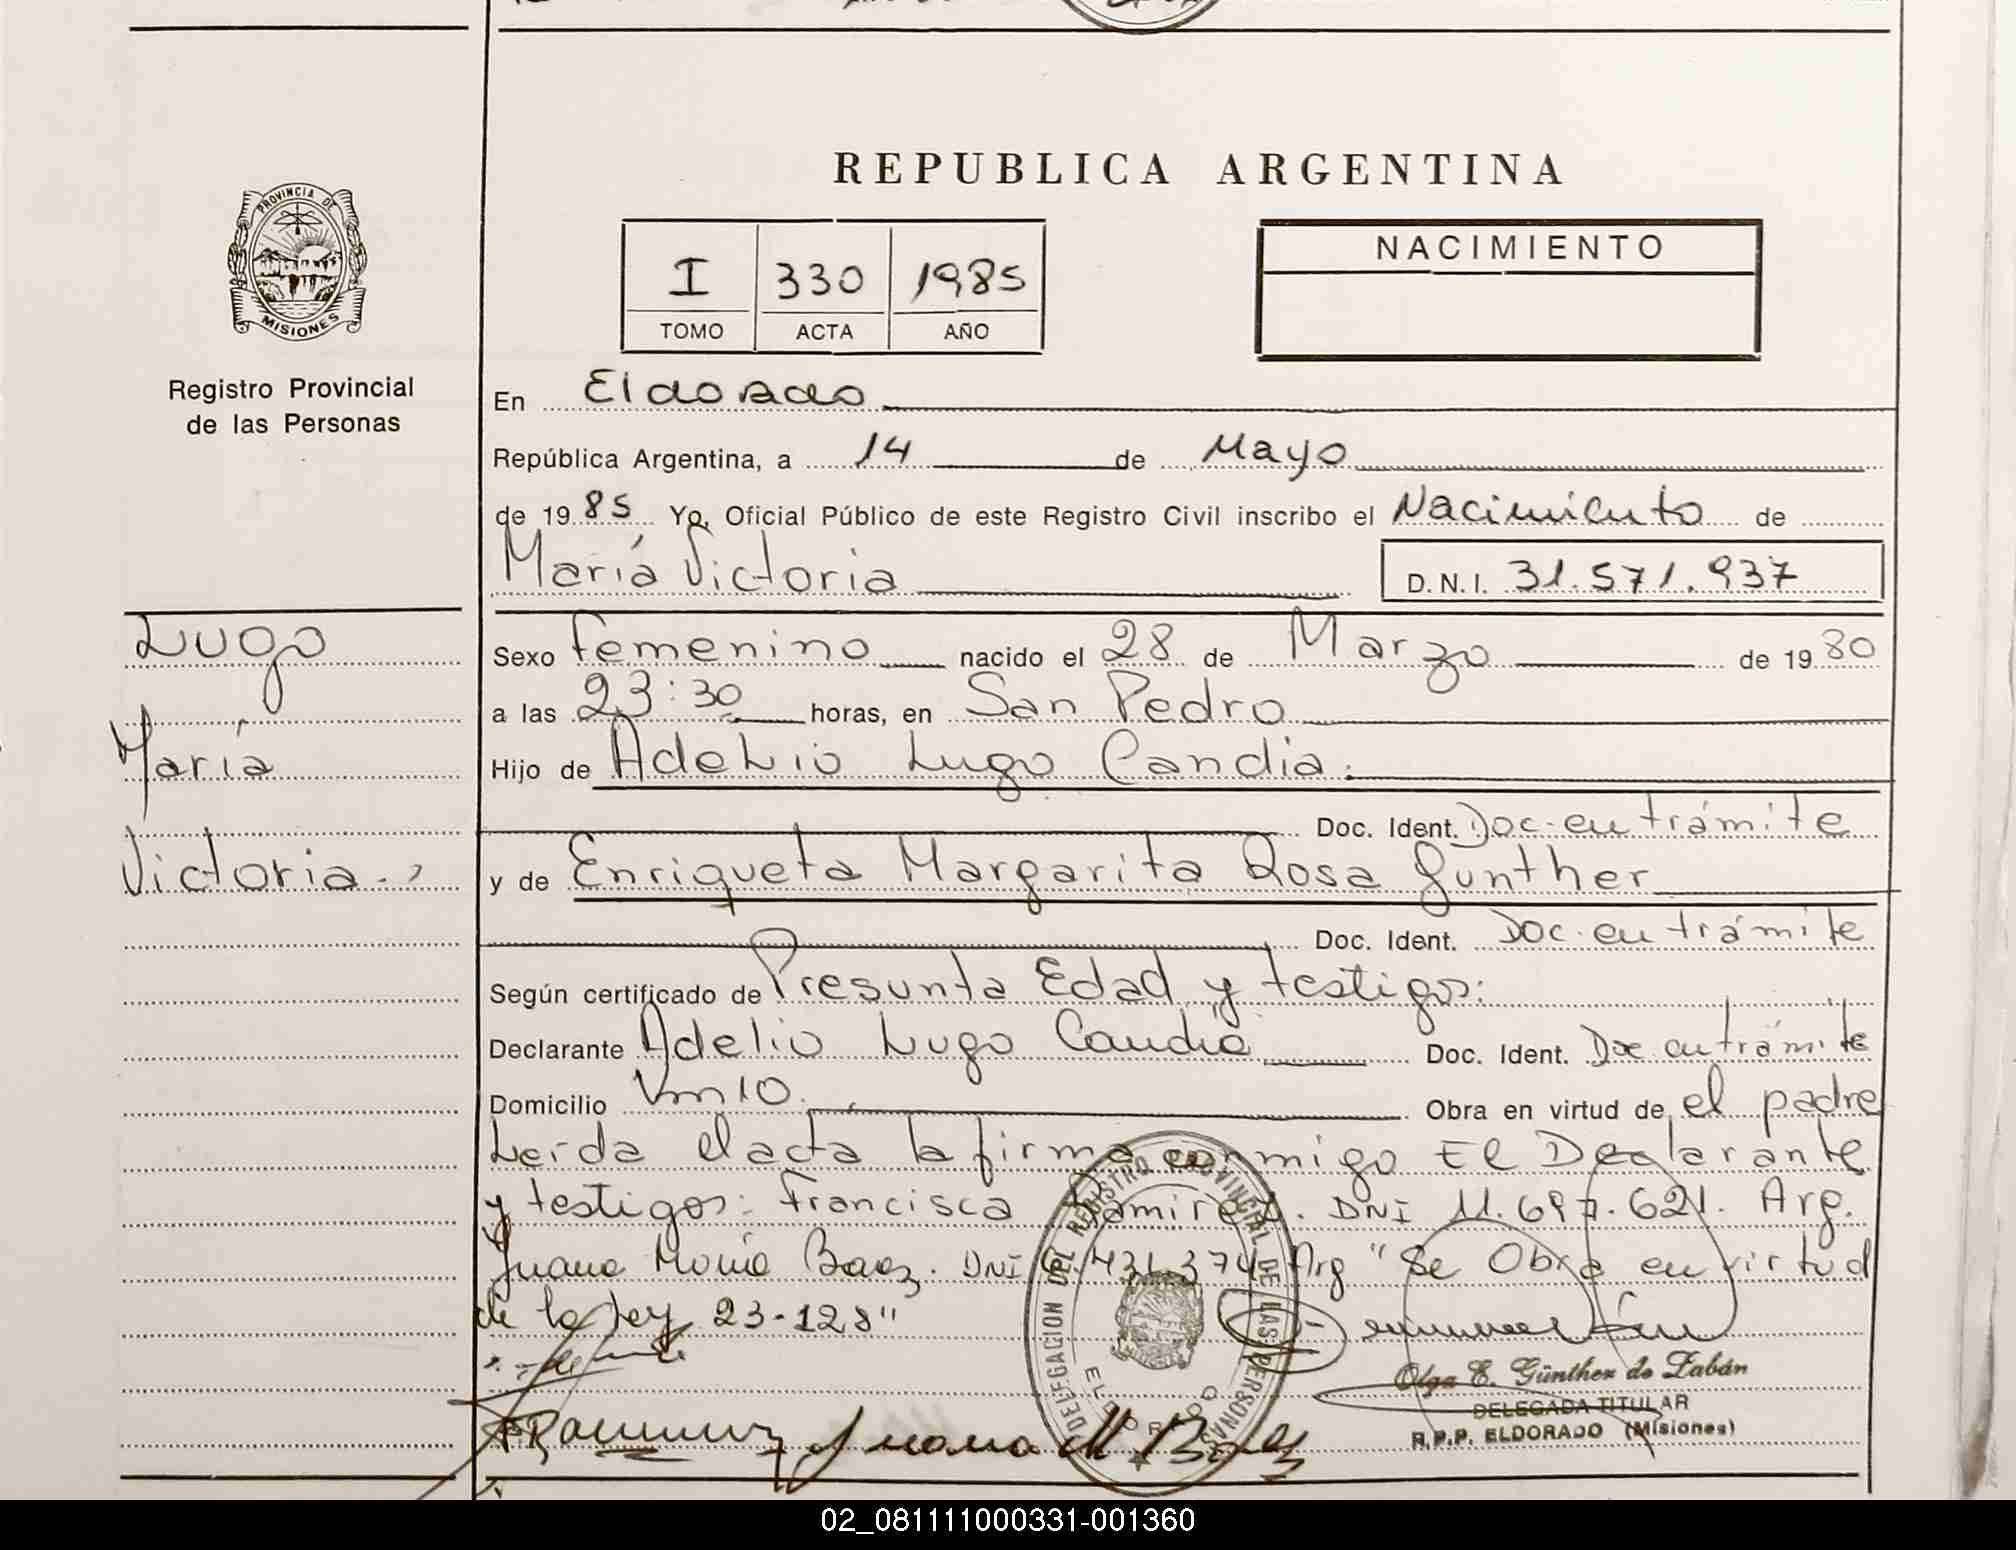 REPUBLICA ARGENTINA
PROVINCIA DE
MISIONES
Registro Provincial
de las Personas
I 330 1985
TOMO ACTA AÑO
NACIMIENTO
En Eldorado
República Argentina, a 14 de Mayo
de 1985 Yo, Oficial Público de este Registro Civil inscribo el Nacimiento de
María Victoria D.N.I. 31.571.937
Lugo
María
Victoria.
Sexo Femenino nacido el 28 de Marzo de 1980
a las 23:30 horas, en San Pedro
Hijo de Adelio Lugo Candia.
Doc. Ident. Doc. en trámite
y de Enriqueta Margarita Rosa Gunther
Doc. Ident. Doc. en trámite
Según certificado de Presunta Edad y testigos:
Declarante Adelio Lugo Candia Doc. Ident. Doc en trámite
Domicilio Km 10. Obra en virtud de el padre
Leída el acta la firma conmigo El Declarante
y testigos: Francisca Ramirez. DNI 11.697.621. Arg.
Juana María Baez. DNI 431.374 Arg "Se Obra en virtud
de la ley 23-128"
DELEGACION DEL REGISTRO PROVINCIAL DE LAS PERSONAS
ELDORADO
Olga E. Günther de Zabán
DELEGADA TITULAR
R.P.P. ELDORADO (Misiones)
F Ramirez Juana M Baez
02_081111000331-001360